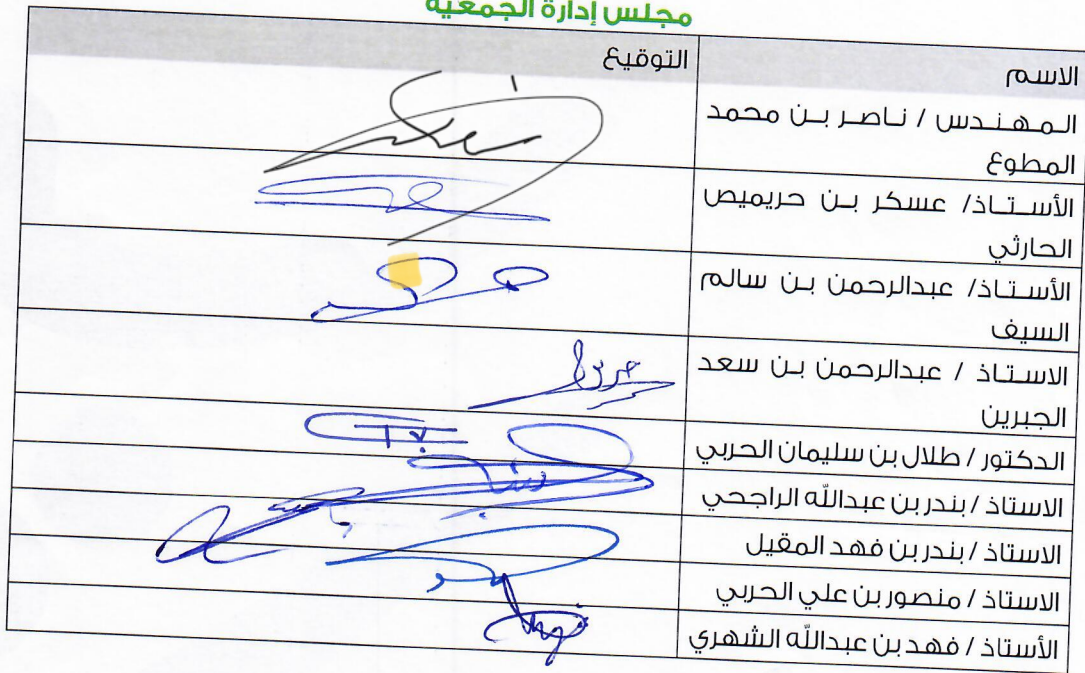 مجلس إدارة الجمعية
الاسم التوقيع
المهندس / ناصر بن محمد
المطوع
الأستاذ/ عسكر بن حريميص
الحارثي
الأستاذ/ عبدالرحمن بن سالم
السيف
الاستاذ / عبدالرحمن بن سعد
الجبرين
الدكتور / طلال بن سليمان الحربي
الاستاذ / بندر بن عبدالله الراجحي
الاستاذ / بندر بن فهد المقيل
الاستاذ / منصور بن علي الحربي
الأستاذ / فهد بن عبدالله الشهري